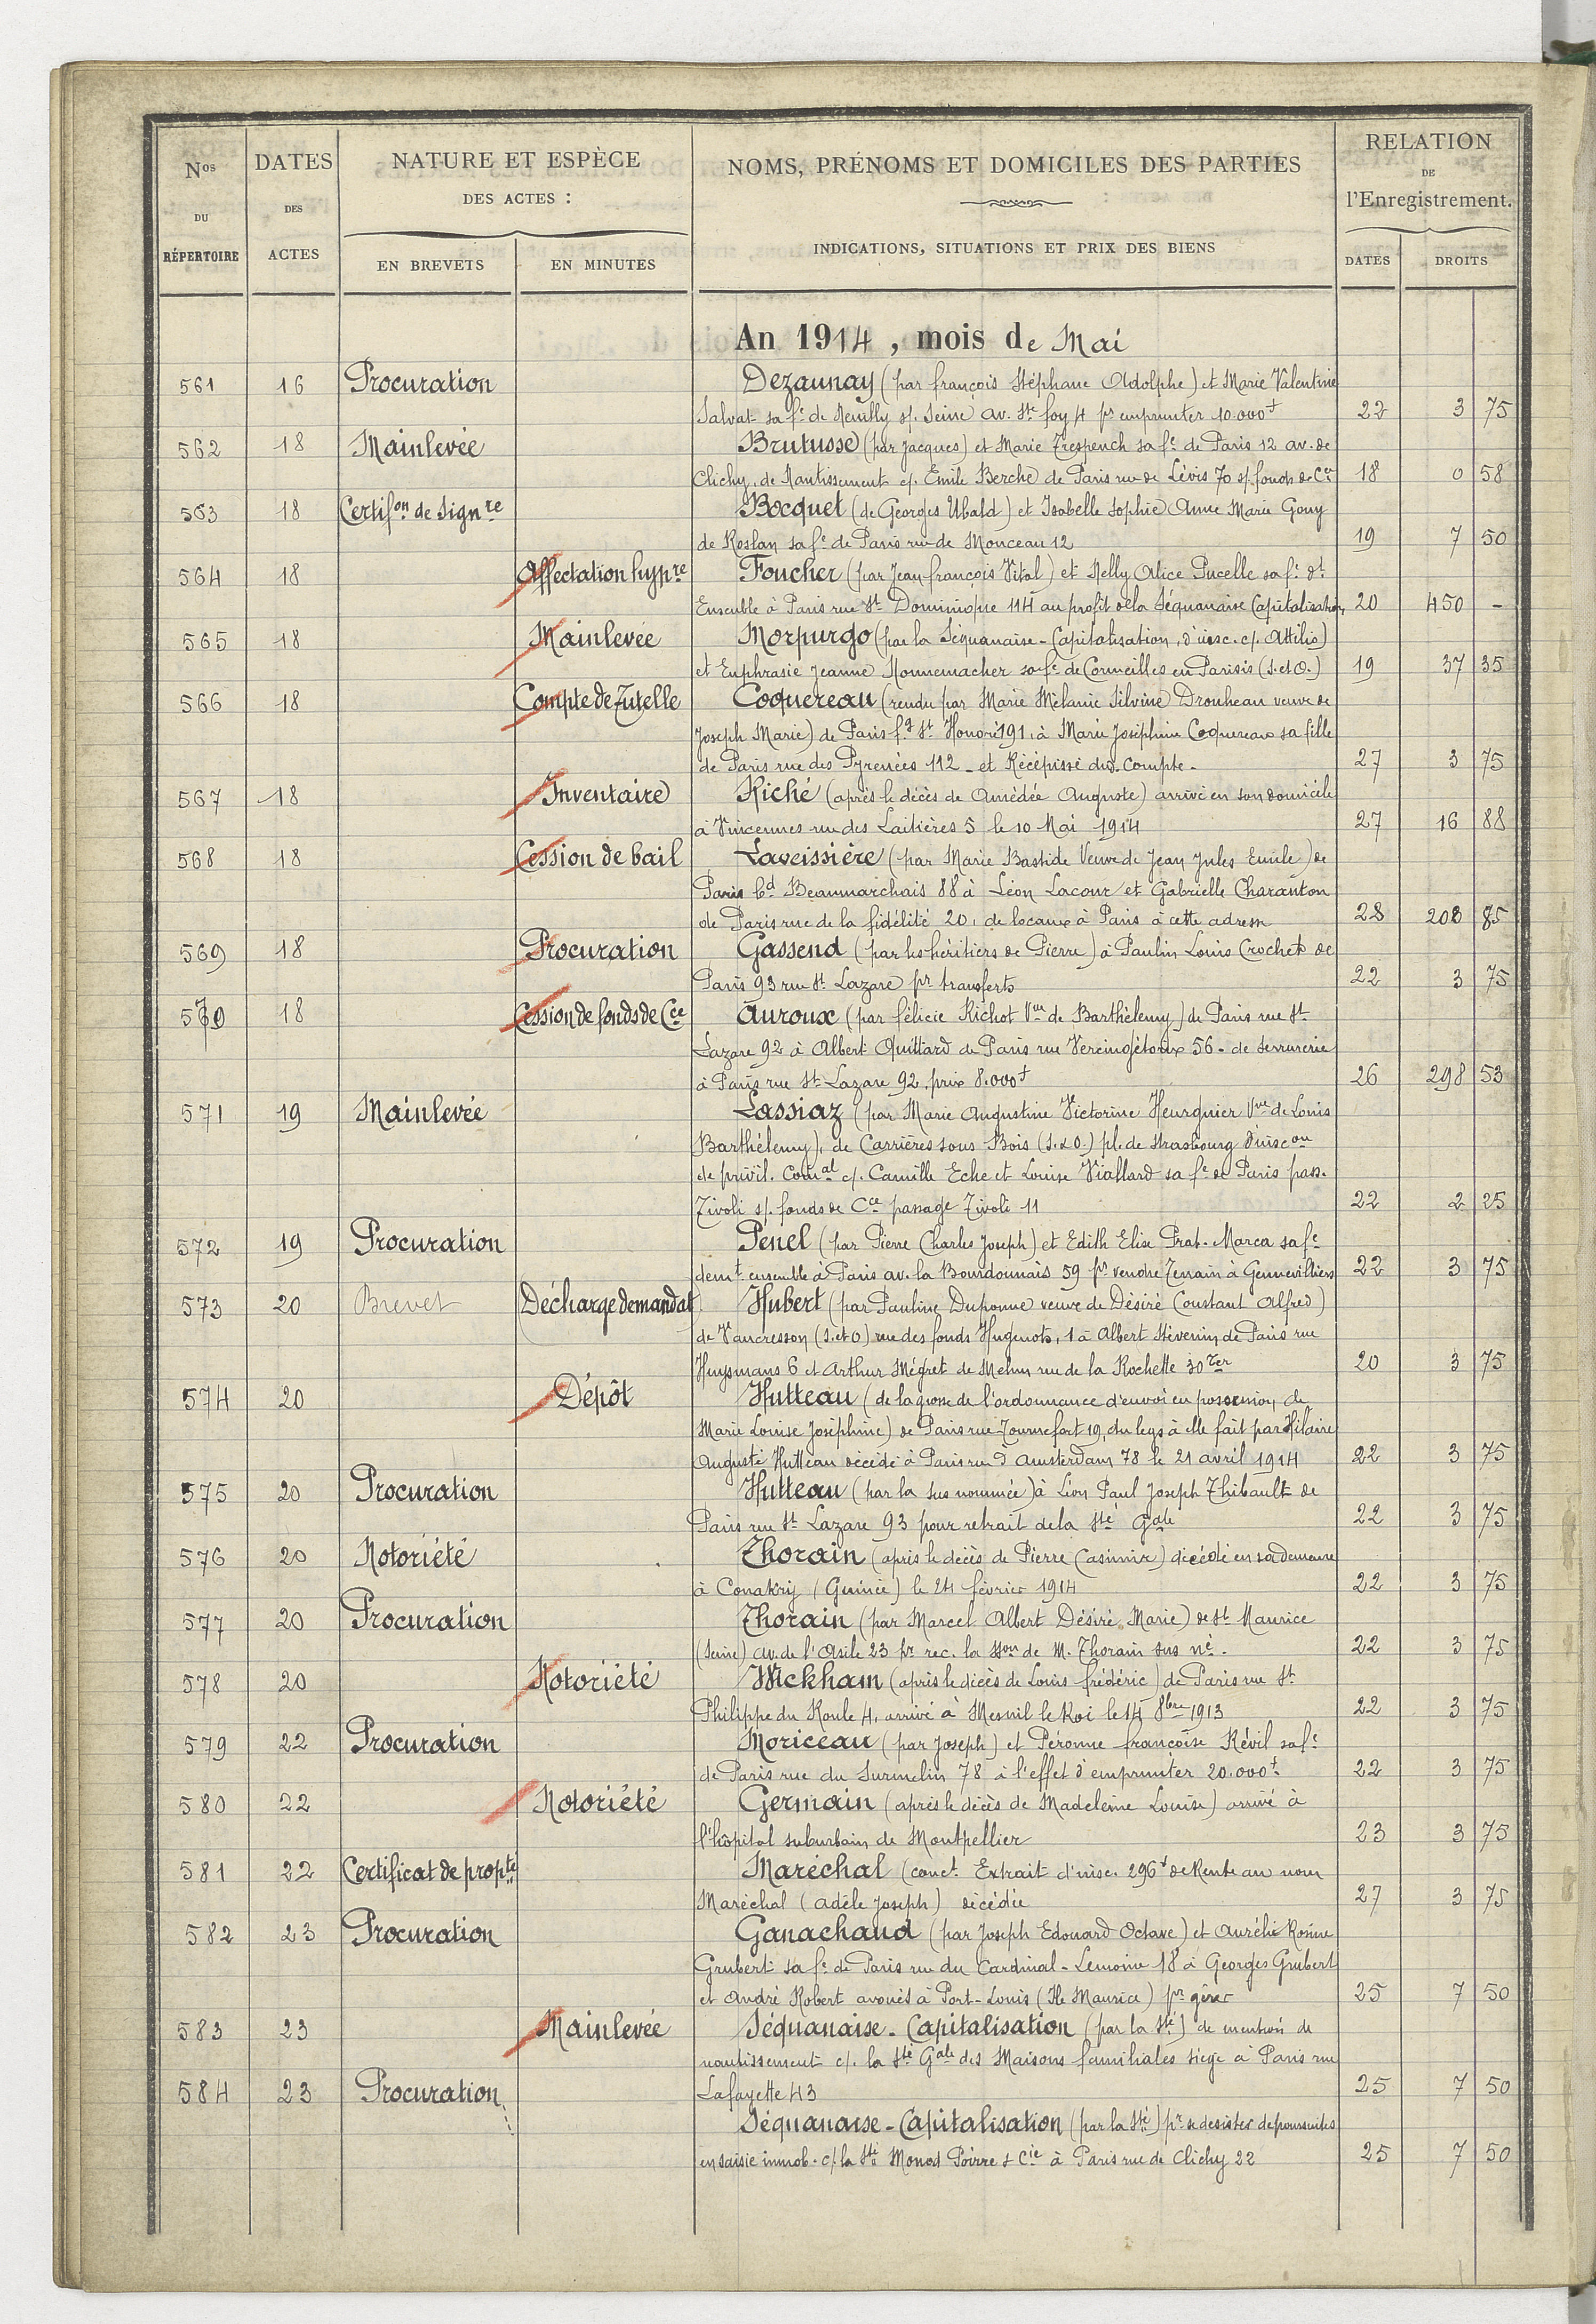 Nos DU RÉPERTOIRE
DATES DES ACTES
NATURE ET ESPÈCE DES ACTES :
EN BREVETS
EN MINUTES
NOMS, PRÉNOMS ET DOMICILES DES PARTIES
INDICATIONS, SITUATIONS ET PRIX DES BIENS
RELATION DE l'Enregistrement.
DATES
DROITS
An 1914, mois de Mai
561 16 Procuration Dezaunay (par françois Stéphane Adolphe) et Marie Valentine
Salvat sa fe de Neuilly s/ Seine av. Ste foy 4 pr emprunter 10.000f 22 3 75
562 18 Mainlevée Brutusse (par Jacques) et Marie Trespench sa fe de Paris 12 av. de
Clichy, de Nantissement c/. Emile Berche de Paris rue de Lévis 70 s/ fonds de Cce 18 0 58
563 18 Certifon de Signre Bocquet (de Georges Ubald) et Isabelle Sophie Anne Marie Gouy
de Roslan sa fe de Paris rue de Monceau 12 19 7 50
564 18 Affectation hypre Foucher (par Jean françois Vital) et Nelly Alice Pucelle sa fe dt
Ensemble à Paris rue St Dominique 114 au profit de la Séquanaise Capitalisation 20 450 -
565 18 Mainlevée Morpurgo (par la Séquanaise-Capitalisation, d'insc. c/. Attilio)
et Euphrasie Jeanne Nonnemacher sa fe de Cormeilles en Parisis (S. et O.) 19 37 35
566 18 Compte de Tutelle Coquereau (rendu par Marie Mélanie Silvine Drouheau veuve de
Joseph Marie) de Paris fg St Honoré 191, à Marie Joséphine Coquereau sa fille
de Paris rue des Pyrenées 112 - et Récépissé dud. Compte - 27 3 75
567 18 Inventaire Riché (après le décès de Amédée Auguste) arrivé en son domicile
à Vincennes rue des Laitières 5 le 10 Mai 1914 27 16 88
568 18 Cession de bail Laveissière (par Marie Bastide Veuve de Jean Jules Emile) de
Paris bd Beaumarchais 88 à Léon Lacour et Gabrielle Charanton
de Paris rue de la fidélité 20, de locaux à Paris à cette adresse 28 208 85
569 18 Procuration Gassend (par les héritiers de Pierre) à Paulin Louis Crochet de
Paris 93 rue St Lazare pr transferts 22 3 75
570 18 Cession de fonds de Cce Auroux (par félicie Richot Vve de Barthélemy) de Paris rue St
Lazare 92 à Albert Quittard de Paris rue Vercingétorix 56 - de serrurerie
à Paris rue St Lazare 92, prix 8.000f 26 298 53
571 19 Mainlevée Lassiaz (par Marie Augustine Victorine Heurguier Vve de Louis
Barthélemy), de Carrières sous Bois (S. & O.) pl. de Strasbourg d'insc on
de privil. Comal c/. Camille Eche et Louise Viallard sa fe de Paris pass.
Tivoli s/. fonds de Cce passage Tivoli 11 22 2 25
572 19 Procuration Penel (par Pierre Charles Joseph) et Edith Elise Prat-Marca sa fe
demt ensemble à Paris av. la Bourdonnais 59 pr vendre Terrain à Gennevilliers 22 3 75
573 20 Brevet Décharge de mandat Hubert (par Pauline Duponne veuve de Désiré Constant Alfred)
de Vaucresson (S. et O) rue des fonds Huguenots, 1 à Albert Stévenin, de Paris rue
Huysmans 6 et Arthur Mégret de Melun rue de la Rochette 30ter 20 3 75
574 20 Dépôt Hutteau (de la grosse de l'ordonnance d'envoi en possession, de
Marie Louise Joséphine) de Paris rue Tournefort 19, du legs à elle fait par Hilaire
Auguste Hutteau décédé à Paris rue d'Amsterdam 78 le 21 avril 1914 22 3 75
575 20 Procuration Hutteau (par la sus nommée) à Léon Paul Joseph Thibault de
Paris rue St Lazare 93 pour retrait de la Sté Gale 22 3 75
576 20 Notoriété Thorain (après le décès de Pierre Casimir) décédé en sa demeure
à Conakry (Guinée) le 24 février 1914 22 3 75
577 20 Procuration Thorain (par Marcel Albert Désiré Marie) de St Maurice
(Seine) av. de l'Asile 23 pr rec. la Son de M. Thorain sus né. 22 3 75
578 20 Notoriété Wickham (après le décès de Louis frédéric) de Paris rue St
Philippe du Roule 4, arrivé à Mesnil le Roi le 14 8bre 1913 22 3 75
579 22 Procuration Moriceau (par Joseph) et Péronne françoise Révil sa fe
de Paris rue du Surmelin 78 à l'effet d'emprunter 20.000f 22 3 75
580 22 Notoriété Germain (après le décès de Madeleine Louise) arrivé à
l'hôpital suburbain de Montpellier 23 3 75
581 22 Certificat de propté Maréchal (conct. Extrait d'insc. 296f de Rente au nom
Maréchal (Adèle Joseph) décédée 27 3 75
582 23 Procuration Ganachaud (par Joseph Edouard Octave) et Aurélie Rosine
Grubert sa fe de Paris rue du Cardinal-Lemoine 18 à Georges Grubert
et André Robert avoués à Port-Louis (Ile Maurice) pr gérer 25 7 50
583 23 Mainlevée Séquanaise-Capitalisation (par la Sté) de mention de
nantissement c/. la Sté Gale des Maisons familiales siège à Paris rue
Lafayette 43 25 7 50
584 23 Procuration Séquanaise-Capitalisation (par la Sté) pr se desister de poursuites
en saisie immob. c/ la Sté Monod Poirre & Cie à Paris rue de Clichy 22 25 7 50